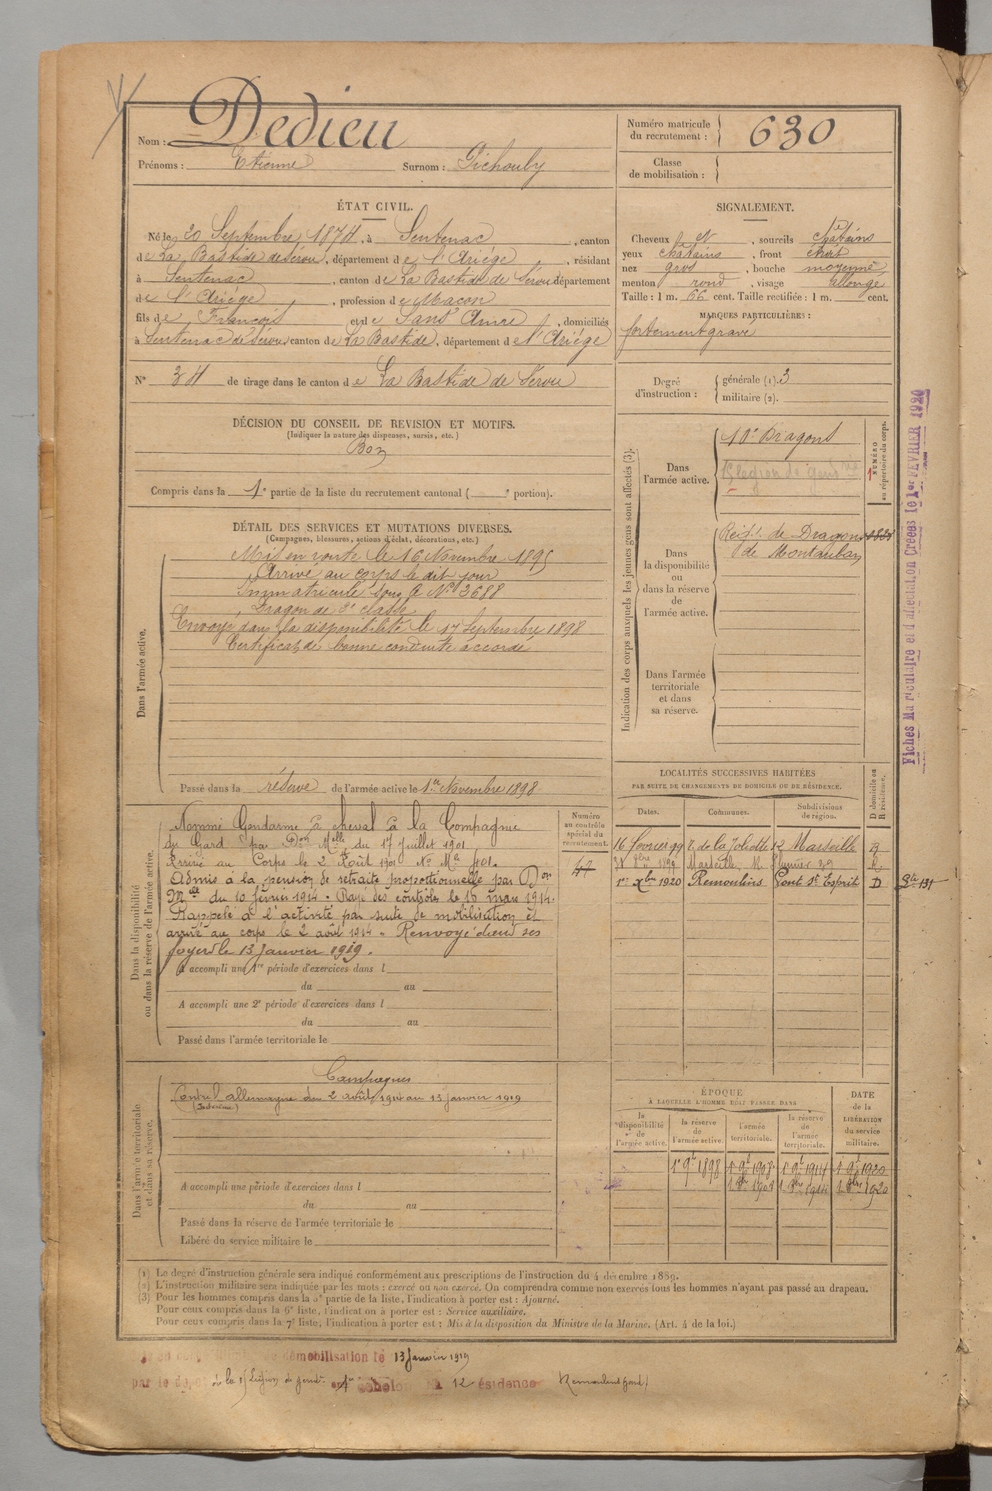 Nom : Dedieu
Prénoms : Etienne Surnom : Pichouly
Numéro matricule du recrutement : 630
Classe de mobilisation :
ÉTAT CIVIL.
Né le 20 Septembre 1874, à Sentenac, canton
de La Bastide de Sérou, département de l'Ariège, résidant
à Sentenac, canton de La Bastide de Sérou département
de l'Ariège, profession de Maçon
fils de François et de Sans Anne, domiciliés
à Sentenac de Serou canton de La Bastide, département de l'Ariège
N° 34 de tirage dans le canton de La Bastide de Sérou
SIGNALEMENT.
Cheveux N, sourcils châtains
yeux châtains, front étroit
nez gros, bouche moyenne
menton rond, visage allongé
Taille : 1 m. 66 cent. Taille rectifiée : 1 m. cent.
MARQUES PARTICULIÈRES :
fortement gravé
Degré d'instruction : générale (1). 3
militaire (2).
DÉCISION DU CONSEIL DE REVISION ET MOTIFS.
(Indiquer la nature des dispenses, sursis, etc.)
Bon
Compris dans la 1e partie de la liste du recrutement cantonal ( e portion).
DÉTAIL DES SERVICES ET MUTATIONS DIVERSES.
(Campagnes, blessures, actions d'éclat, décorations, etc.)
Dans l'armée active.
Mis en route le 16 Novembre 1895
Arrivé au corps le dit jour
Immatriculé sous le N° 3688
Dragon de 2e classe
Envoyé dans la disponibilité le 17 Septembre 1898
Certificat de bonne conduite accordé
Passé dans la réserve de l'armée active le 1er Novembre 1898
Indication des corps auxquels les jeunes gens sont affectés (3).
Dans l'armée active.
10e Dragons
15 légion de gend
NUMÉRO au répertoire du corps.
Dans la disponibilité ou dans la réserve de l'armée active.
Régt. de Dragons
de Montauban
Dans l'armée territoriale et dans sa réserve.
Fiches Matriculaire et d'affectation Créées le 1er FEVRIER 1920
Dans la disponibilité ou dans la réserve de l'armée active.
Nommé Gendarme à cheval à la Compagnie
du Gard par Don Mlle du 17 juillet 1901
Arrivé au Corps le 2 Août 1901 No Mle 401.
Admis à la pension de retraite proportionnelle par Don
Mlle du 10 février 1914. Rayé des contrôles le 16 mars 1914.
Rappelé à l'activité par suite de mobilisation et
arrivé au corps le 2 août 1914. Renvoyé dans ses
foyers le 13 Janvier 1919.
A accompli une 1re période d'exercices dans l
du au
A accompli une 2e période d'exercices dans l
du au
Passé dans l'armée territoriale le
Numéro au contrôle spécial du recrutement.
47
LOCALITÉS SUCCESSIVES HABITÉES
PAR SUITE DE CHANGEMENTS DE DOMICILE OU DE RÉSIDENCE.
Dates. Communes. Subdivisions de région. D domicile ou R résidence.
16 février 99 r. de la Joliette 12 Marseille R
1er Xbre 1920 Remoulins Pont St Esprit D
Dans l'armée territoriale et dans sa réserve.
Campagnes
Contre l'allemagne du 2 août 1914 au 13 janvier 1919
(Intérieur)
A accompli une période d'exercices dans l
du au
Passé dans la réserve de l'armée territoriale le
Libéré du service militaire le
ÉPOQUE
À LAQUELLE L'HOMME DOIT PASSER DANS
la disponibilité de l'armée active.
la réserve de l'armée active.
l'armée territoriale.
la réserve de l'armée territoriale.
DATE de la LIBÉRATION du service militaire.
1er 9bre 1898 1er 9bre 1908 1er 9bre 1914 1er 9bre 1920
(1) Le degré d'instruction générale sera indiqué conformément aux prescriptions de l'instruction du 4 décembre 1889.
(2) L'instruction militaire sera indiquée par les mots : exercé ou non exercé. On comprendra comme non exercés tous les hommes n'ayant pas passé au drapeau.
(3) Pour les hommes compris dans la 5e partie de la liste, l'indication à porter est : Ajourné.
Pour ceux compris dans la 6e liste, l'indication à porter est : Service auxiliaire.
Pour ceux compris dans la 7e liste, l'indication à porter est : Mis à la disposition du Ministre de la Marine. (Art. 4 de la loi.)
démobilisation le 13 Janvier 1919
par le dépôt de la 15 Légion de gend. échelon 12 résidence Remoulins (Gard)